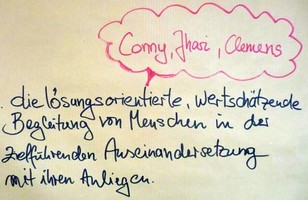 Conny, Jhasi, Clemens
. die lösungsorientierte, wertschätzende
Begleitung von Menschen in der
zielführenden Auseinandersetzung
mit ihren Anliegen.